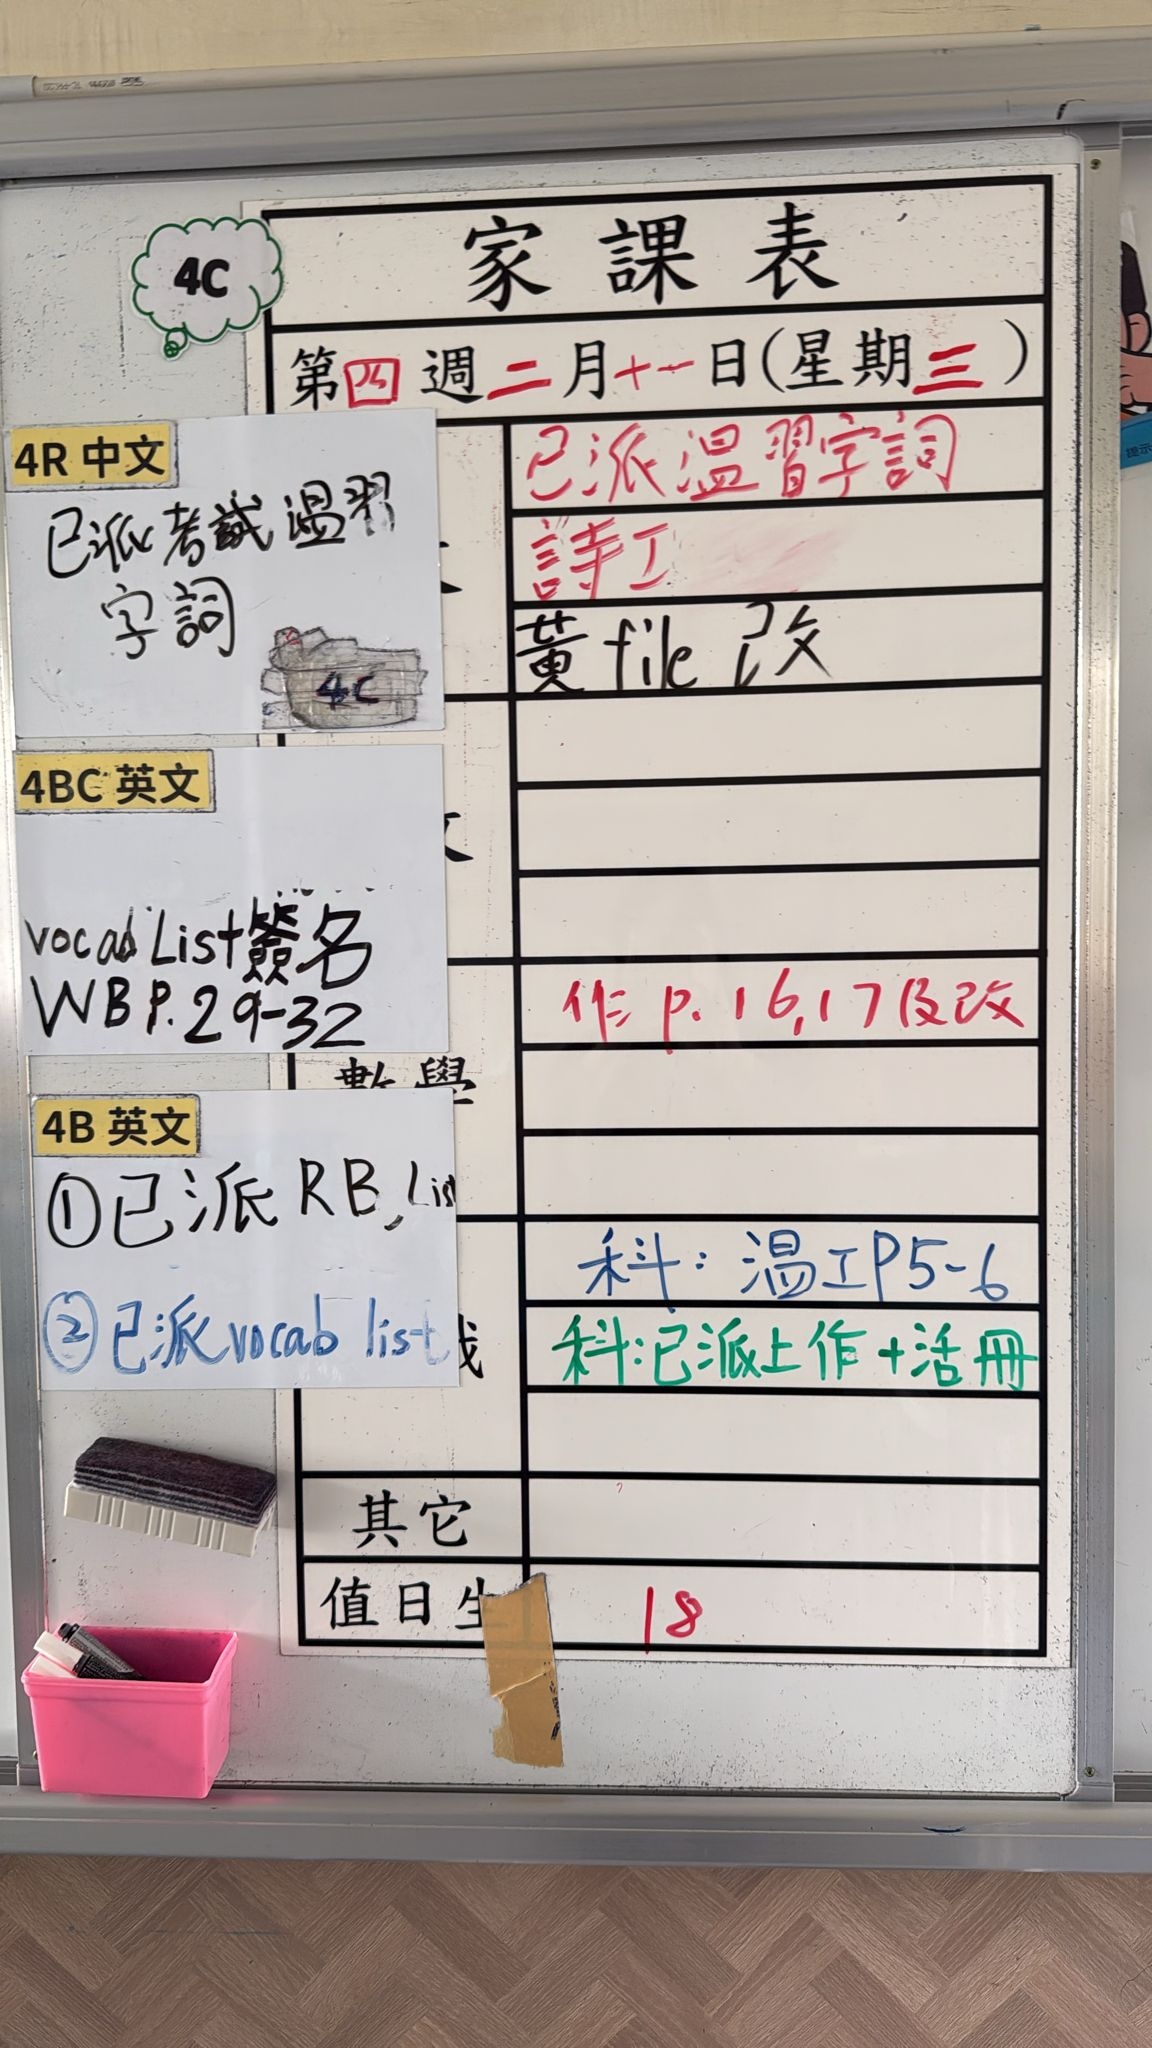 家課表
4C
第四週二月十一日(星期三)
4R 中文
已派考試溫習
字詞
4C
已派溫習字詞
詩工
黃file 改
4BC 英文
vocab List簽名
WB P.29-32
作 p.16,17及改
數學
4B 英文
①已派 RB, List
②已派vocab list
科: 溫工P5-6
科:已派上作+活冊
其它
值日生
18
提示